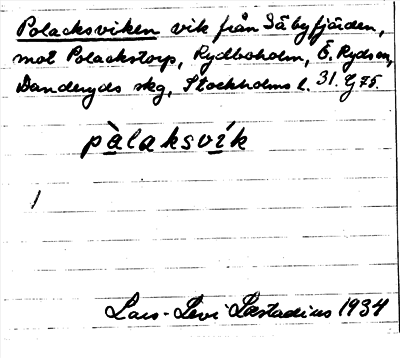 Polacksviken vik från Säbyfjärden,
mot Polackstorp, Rydboholm, Ö. Ryds sn,
Danderyds skg, Stockholms l. 31. G 75.
pàlaksvík
/
Lars-Levi Læstadius 1934